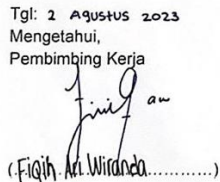 Tgl: 2 Agustus 2023
Mengetahui,
Pembimbing Kerja
an
(Fiqih Ari Wiranda............)